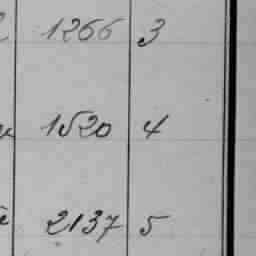 1266 3
1520 4
2137 5